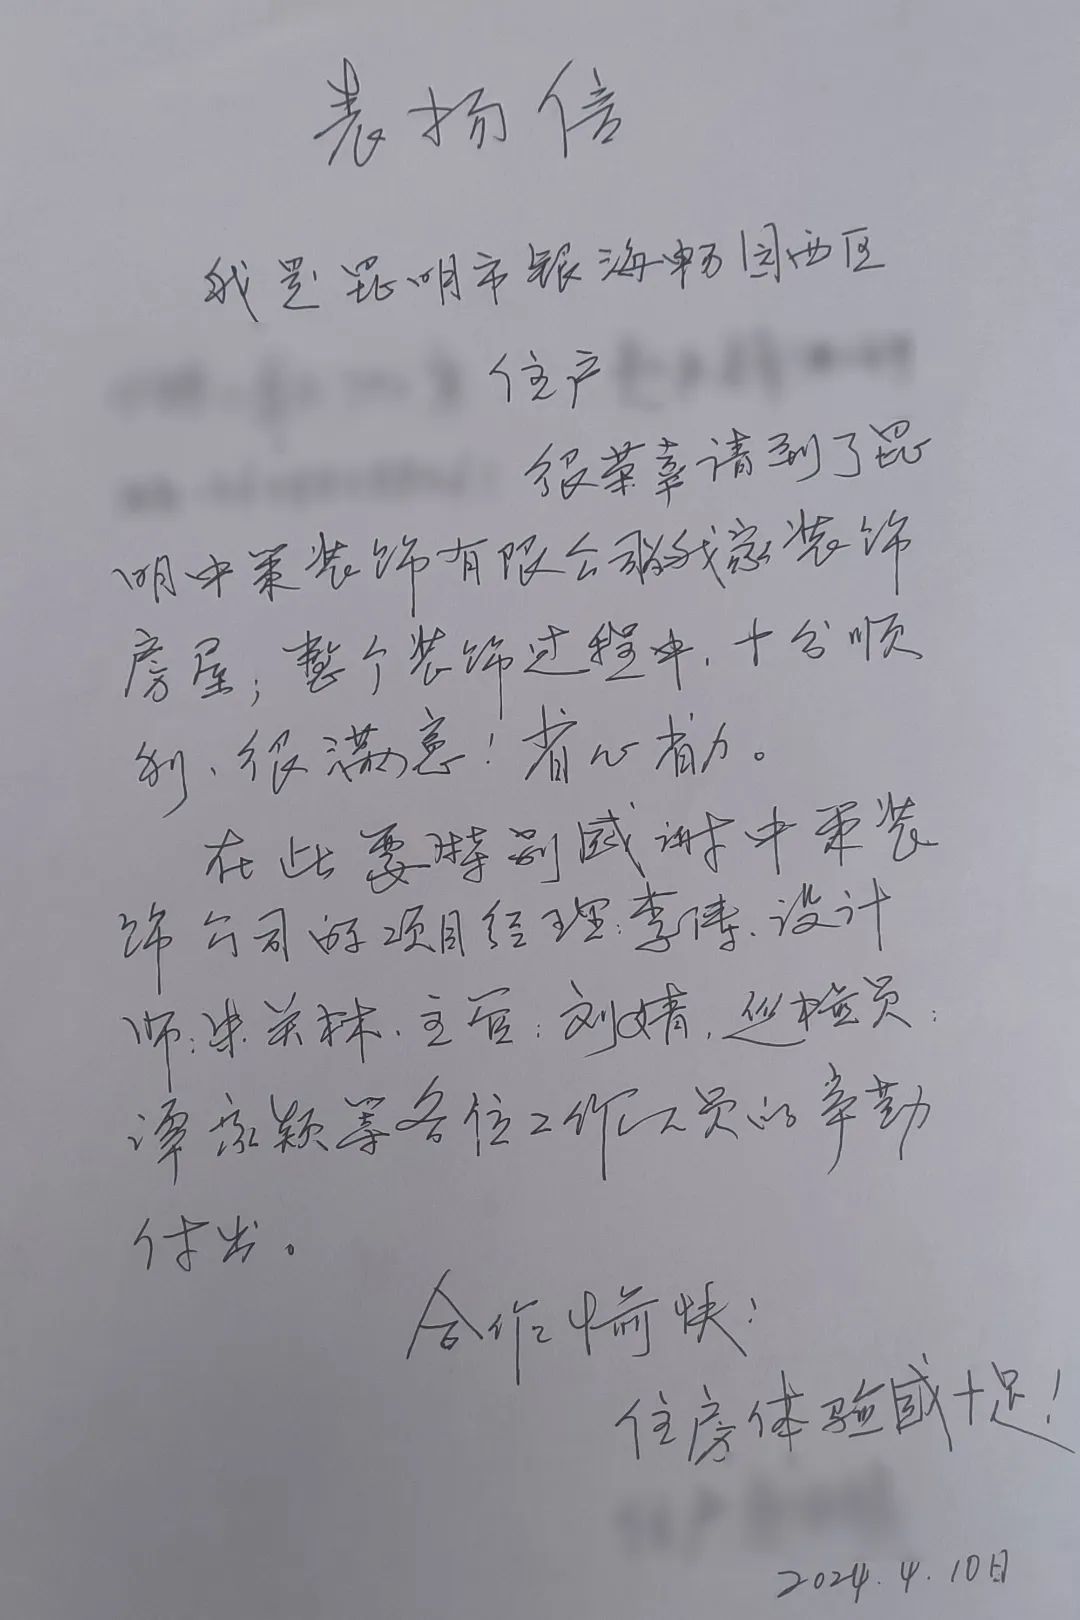 表扬信
我是昆明市银海畅园西区
住户
很荣幸请到了昆
明中策装饰有限公司给我家装饰
房屋，整个装饰过程中，十分顺
利、很满意！省心省力。
在此要特别感谢中策装
饰公司的项目经理：李伟、设计
师：朱关林、主管：刘婧，巡检员：
谭家颖等各位工作人员的辛勤
付出。
合作愉快！
住房体验感十足！
2024.4.10日